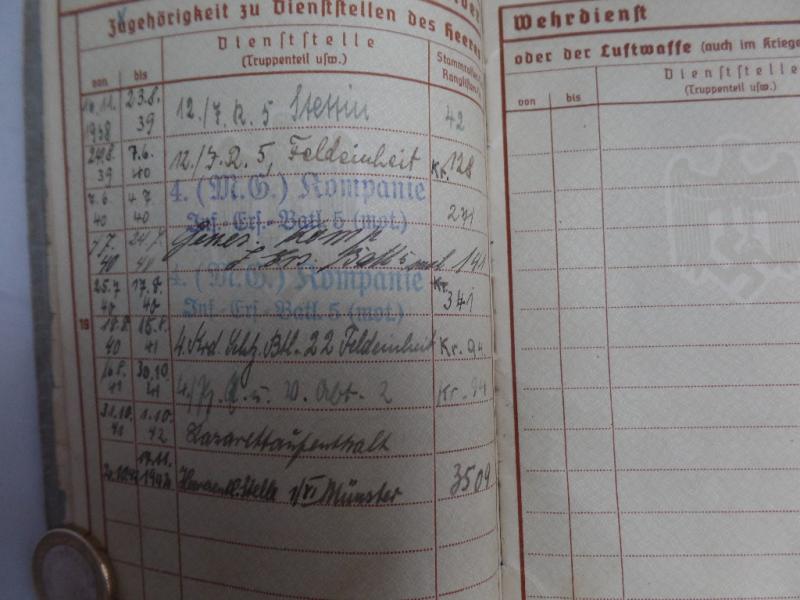 Zugehörigkeit zu Dienststellen des Heeres
von
bis
Dienststelle
(Truppenteil usw.)
Stammrollen
Ranglisten
16.11. 1938
23.8. 39
12./J. R. 5 Stettin
42
24.8. 39
7.6. 40
12./J. R. 5, Feldeinheit
Kr. 128
7.6. 40
4.7. 40
4. (M.G.) Kompanie
Inf.-Ers.-Batl. 5 (mot.)
271
7.7. 40
24.7. 40
Genes. Komp.
Batl. 5 mot.
141
25.7. 40
17.8. 40
4. (M.G.) Kompanie
Inf.-Ers.-Batl. 5 (mot.)
Kr. 341
19
18.8. 40
15.8. 41
4. Krd. Schtz. Btl. 22 Feldeinheit
Kr. 94
16.8. 41
30.10. 41
Abt. 2
Kr. 94
31.10. 41
1.10. 42
Lazarettaufenthalt
17.11. 1942
Münster
3509
Wehrdienst
oder der Luftwaffe (auch im Kriege
von
bis
Dienststelle
(Truppenteil usw.)